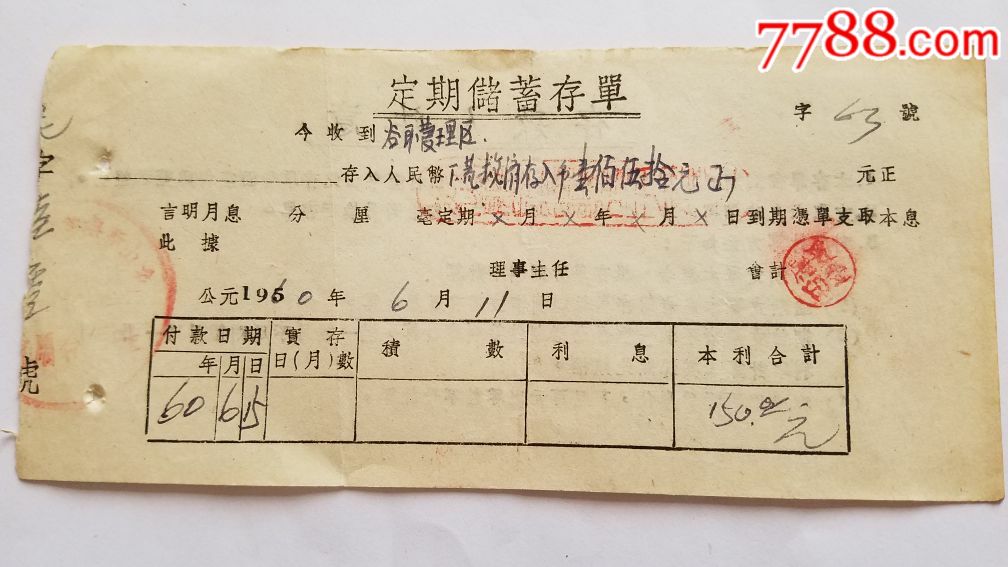 7788.com
定期儲蓄存單
字 63 號
今收到 管理区
存入人民幣 政府存入币壹佰伍拾元正 元正
言明月息 分 厘 毫定期 × 月 × 年 × 月 × 日到期憑單支取本息
此據
理事主任 會計
公元1960年 6 月 11 日
付款日期 實存日(月)數 積數 利息 本利合計
年 月 日
60 6 15 150.00元
號